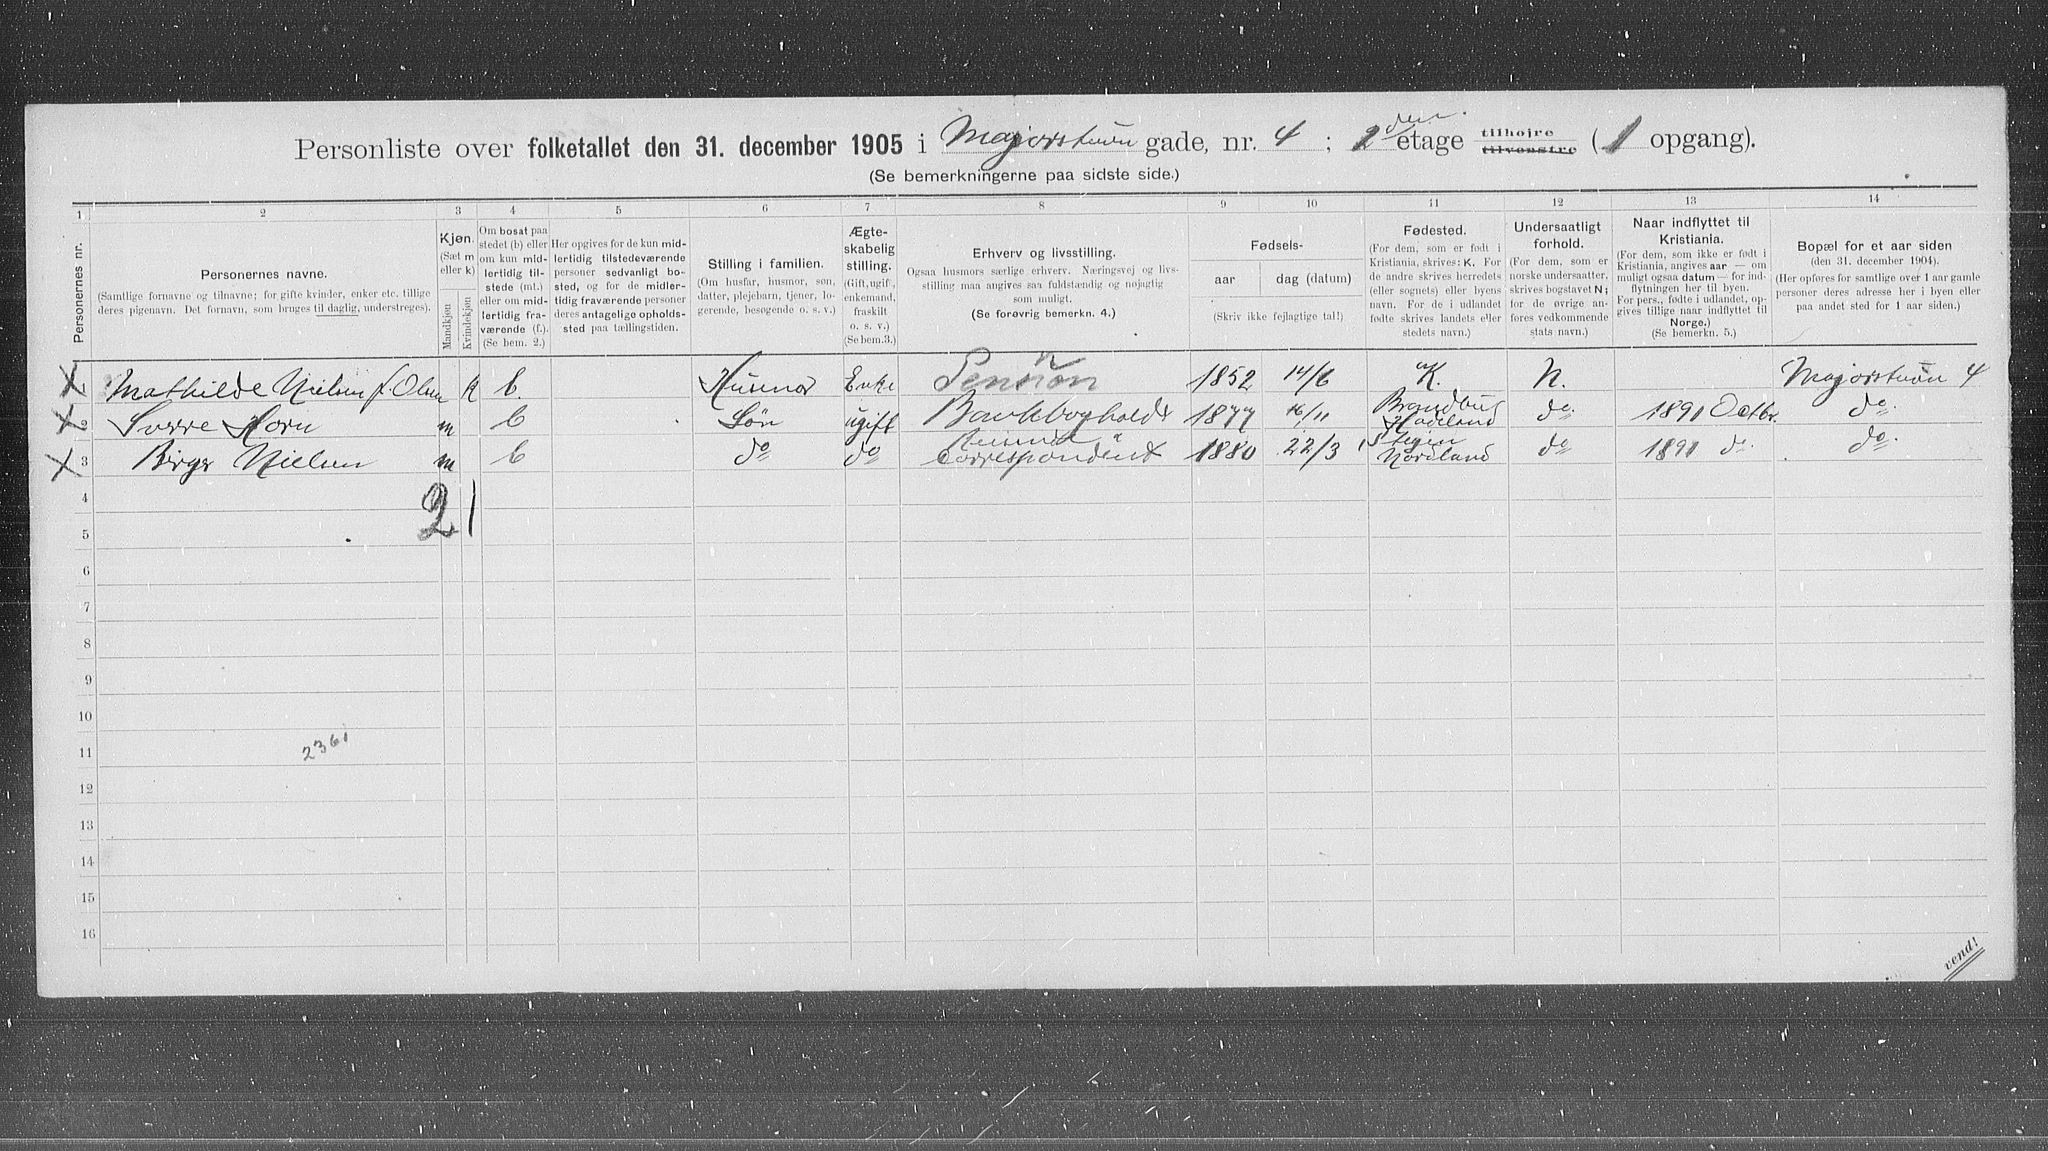 Personliste over folketallet den 31. december 1905 i Majorstuen gade, nr. 4 ; 2 den etage tilhøjre tilvenstre (1 opgang).
(Se bemerkningerne paa sidste side.)
1 2 3 4 5 6 7 8 9 10 11 12 13 14
Personernes nr.
Personernes navne.
(Samtlige fornavne og tilnavne; for gifte kvinder, enker etc. tillige
deres pigenavn. Det fornavn, som bruges til daglig, understreges).
Kjøn.
(Sæt m
eller k)
Mandkjøn
Kvindekjøn
Om bosat paa
stedet (b) eller
om kun mid-
lertidig til-
stede (mt.)
eller om mid-
lertidig fra-
værende (f.).
(Se bem. 2.)
Her opgives for de kun mid-
lertidig tilstedeværende
personer sedvanlig bo-
sted, og for de midler-
tidig fraværende personer
deres antagelige opholds-
sted paa tællingstiden.
Stilling i familien.
(Om husfar, husmor, søn,
datter, plejebarn, tjener, lo-
gerende, besøgende o. s. v.)
Ægte-
skabelig
stilling.
(Gift, ugift,
enkemand,
fraskilt
o. s. v.)
(Se bem.3.)
Erhverv og livsstilling.
Ogsaa husmors særlige erhverv. Næringsvej og livs-
stilling maa angives saa fuldstændig og nøjagtig
som muligt.
(Se forøvrig bemerkn. 4.)
Fødsels-
aar dag (datum)
(Skriv ikke fejlagtige tal!)
Fødested.
(For dem, som er født i
Kristiania, skrives: K. For
de andre skrives herredets
(eller sognets) eller byens
navn. For de i udlandet
fødte skrives landets eller
stedets navn.)
Undersaatligt
forhold.
(For dem, som er
norske undersaatter,
skrives bogstavet N;
for de øvrige an-
føres vedkommende
stats navn.)
Naar indflyttet til
Kristiania.
(For dem, som ikke er født i
Kristiania, angives aar — om
muligt ogsaa datum — for ind-
flytningen her til byen.
For pers., fødte i udlandet, op-
gives tillige naar indflyttet til
Norge.)
(Se bemerkn. 5.)
Bopæl for et aar siden
(den 31. december 1904).
(Her opføres for samtlige over 1 aar gamle
personer deres adresse her i byen eller
paa andet sted for 1 aar siden.)
1 Mathilde Nielsen f. Olsen k b. Husmor Enke Pension 1852 14/6 K. N. Majorstuen 4
2 Sverre Horn m b Søn ugift Bankbogholder 1877 16/11 Brandbu Hadeland do. 1891 Octbr. do.
3 Birger Nielsen m b do do Correspondent 1880 22/3 Stegen Nordland do 1891 do do.
4
2 1
5
6
7
8
9
10
11 2361
12
13
14
15
16
vend!